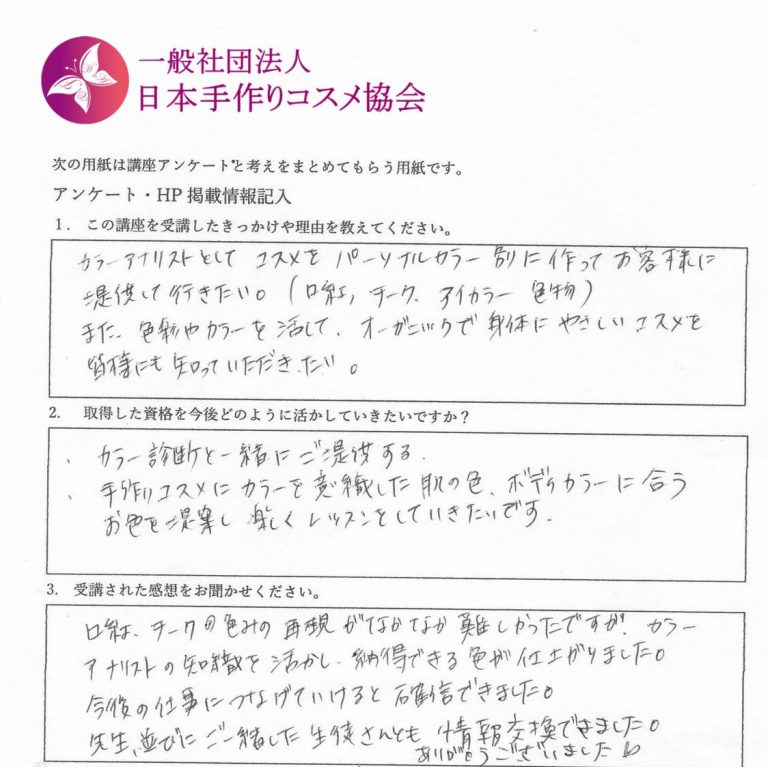 一般社団法人
日本手作りコスメ協会
次の用紙は講座アンケートと考えをまとめてもらう用紙です。
アンケート・HP 掲載情報記入
1. この講座を受講したきっかけや理由を教えてください。
カラーアナリストとして コスメを パーソナルカラー 別に 作って お客様に
提供して行きたい。(口紅, チーク, アイカラー 色物)
また、色彩やカラーを活して、オーガニックで 身体に やさしいコスメを
皆様にも 知っていただきたい。
2. 取得した資格を今後どのように活かしていきたいですか?
、カラー診断と一緒に ご提供する.
、手作りコスメに カラーを 意識した 肌の色、ボディカラーに 合う
お色を 提案し 楽しく レッスンをしていきたいです.
3. 受講された感想をお聞かせください。
口紅、チークの色みの 再現 がなかなか 難しかったですが、カラー
アナリストの 知識を 活かし、納得できる 色が 仕上がりました。
今後の仕事に つなげていけると 確信できました。
先生、並びに ご一緒した 生徒さんとも 情報交換できました。
ありがとうございました